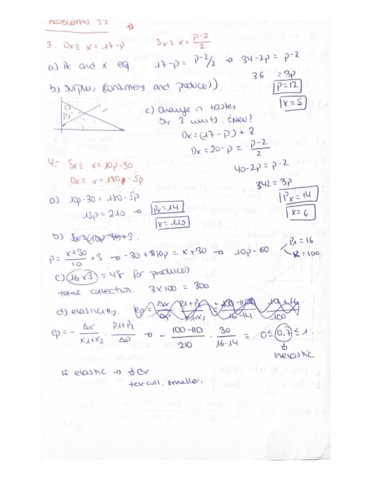 3. Dx ≡ x = 17-p Sx ≡ x = p-2/2
a) Px and x eq. 17-p = p-2/2 → 34-2p = p-2
36 = 3p
P=12
x=5
b) Surplus (consumers and producers).
CS
PS
c) change in tastes
by 3 units. ¿New?
Dx = (17-p) + 3
Dx = 20-p = p-2/2
40-2p = p-2
42 = 3p
Px = 14
x = 6
4.- Sx ≡ x = 10p-30
Dx ≡ x = 180-5p
a) 10p-30 = 180-5p
15p = 210 → Px=14
x = 110
b)
P = x+30/10 + 3 → -30 + 10p = x+30 → 10p-60
P = 16
x = 100
c) 16x3 = 48 for producers
total collection. 3x100 = 300
d) elasticity.
ep = - Δx/x1+x2 · P1+P2/Δp → - 100-110/210 · 30/16-14 = 0 ≤ 0,7 ≤ 1
inelastic
If elastic →
tax coll. smaller.